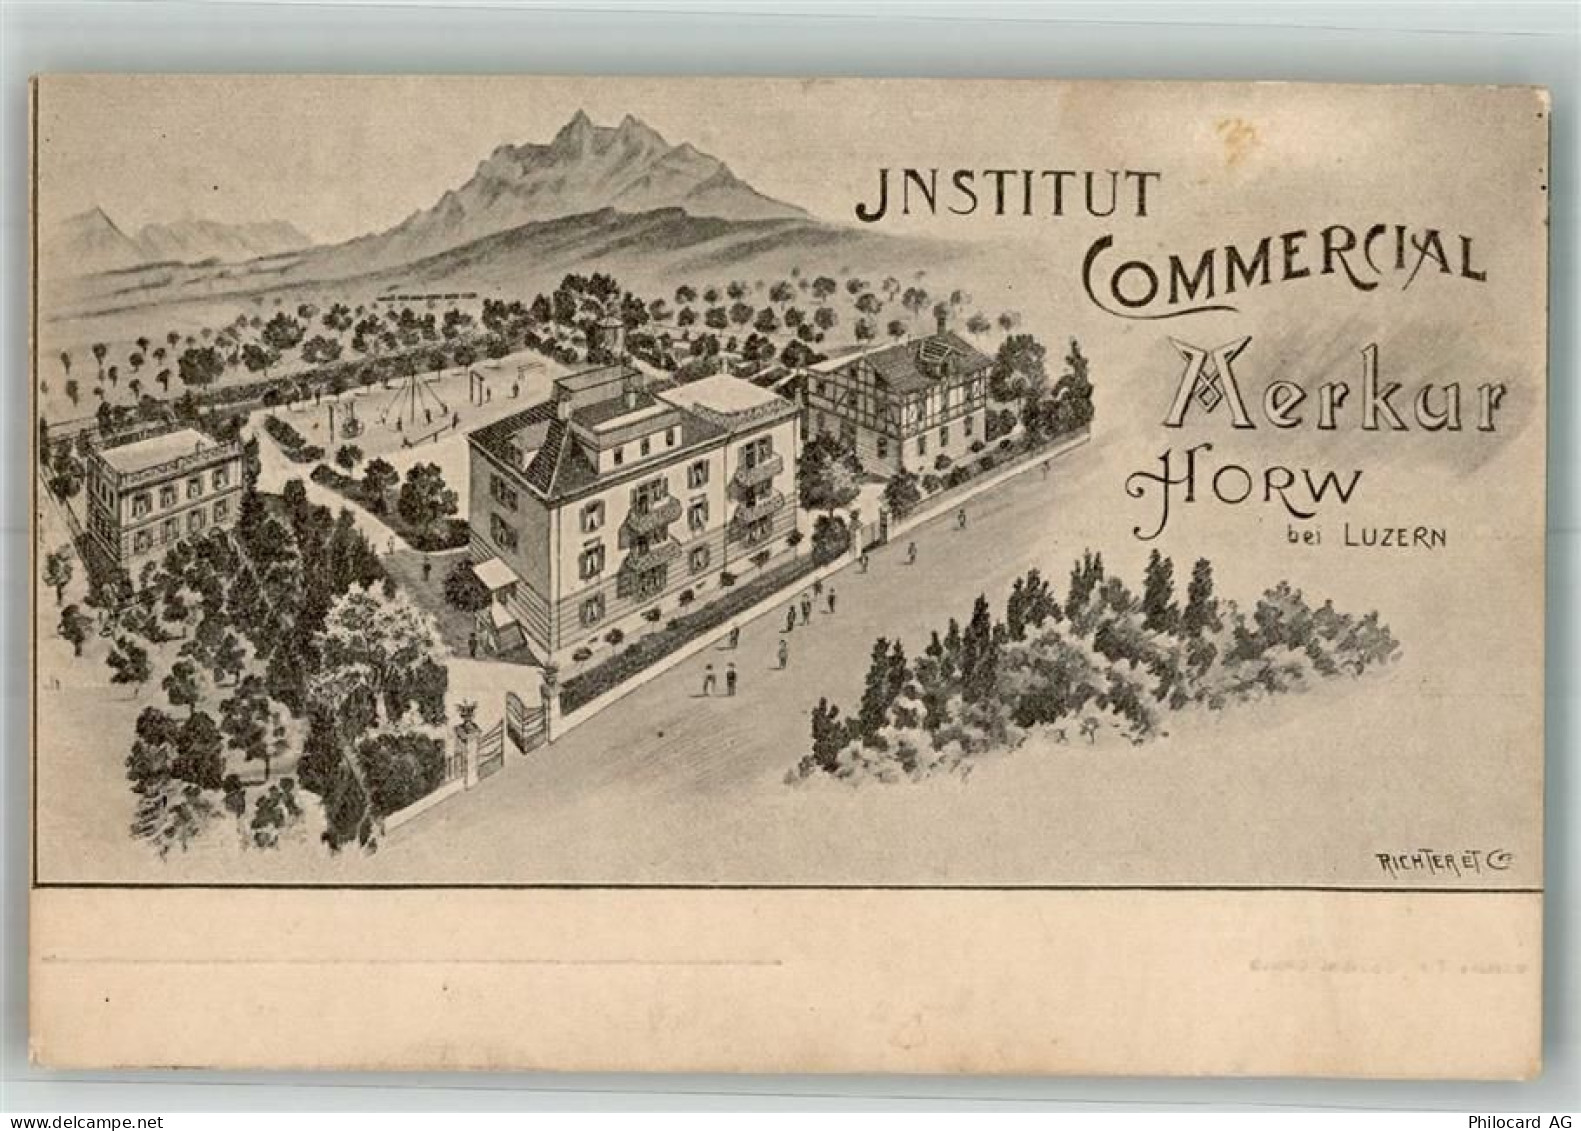 JNSTITUT
COMMERCIAL
Merkur
HORW
bei LUZERN
RICHTER ET Cie
www.delcampe.net
Philocard AG